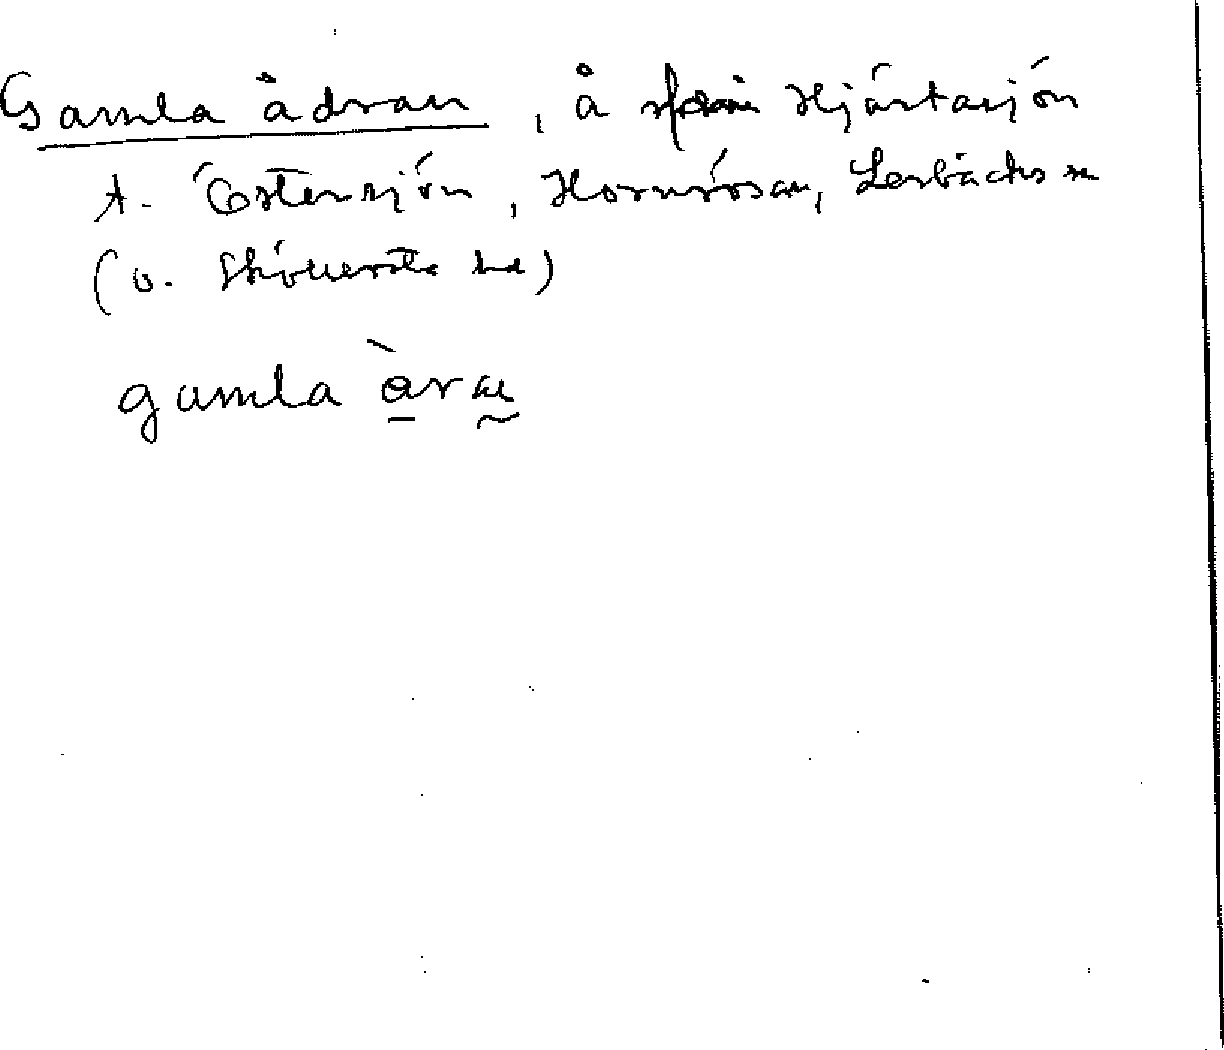 Gamla ådran, å från Hjärtasjön
t. Östensjön, Hornsrösan, Lerbäcks sn
(o. Sköllersta hd)
gamla àran